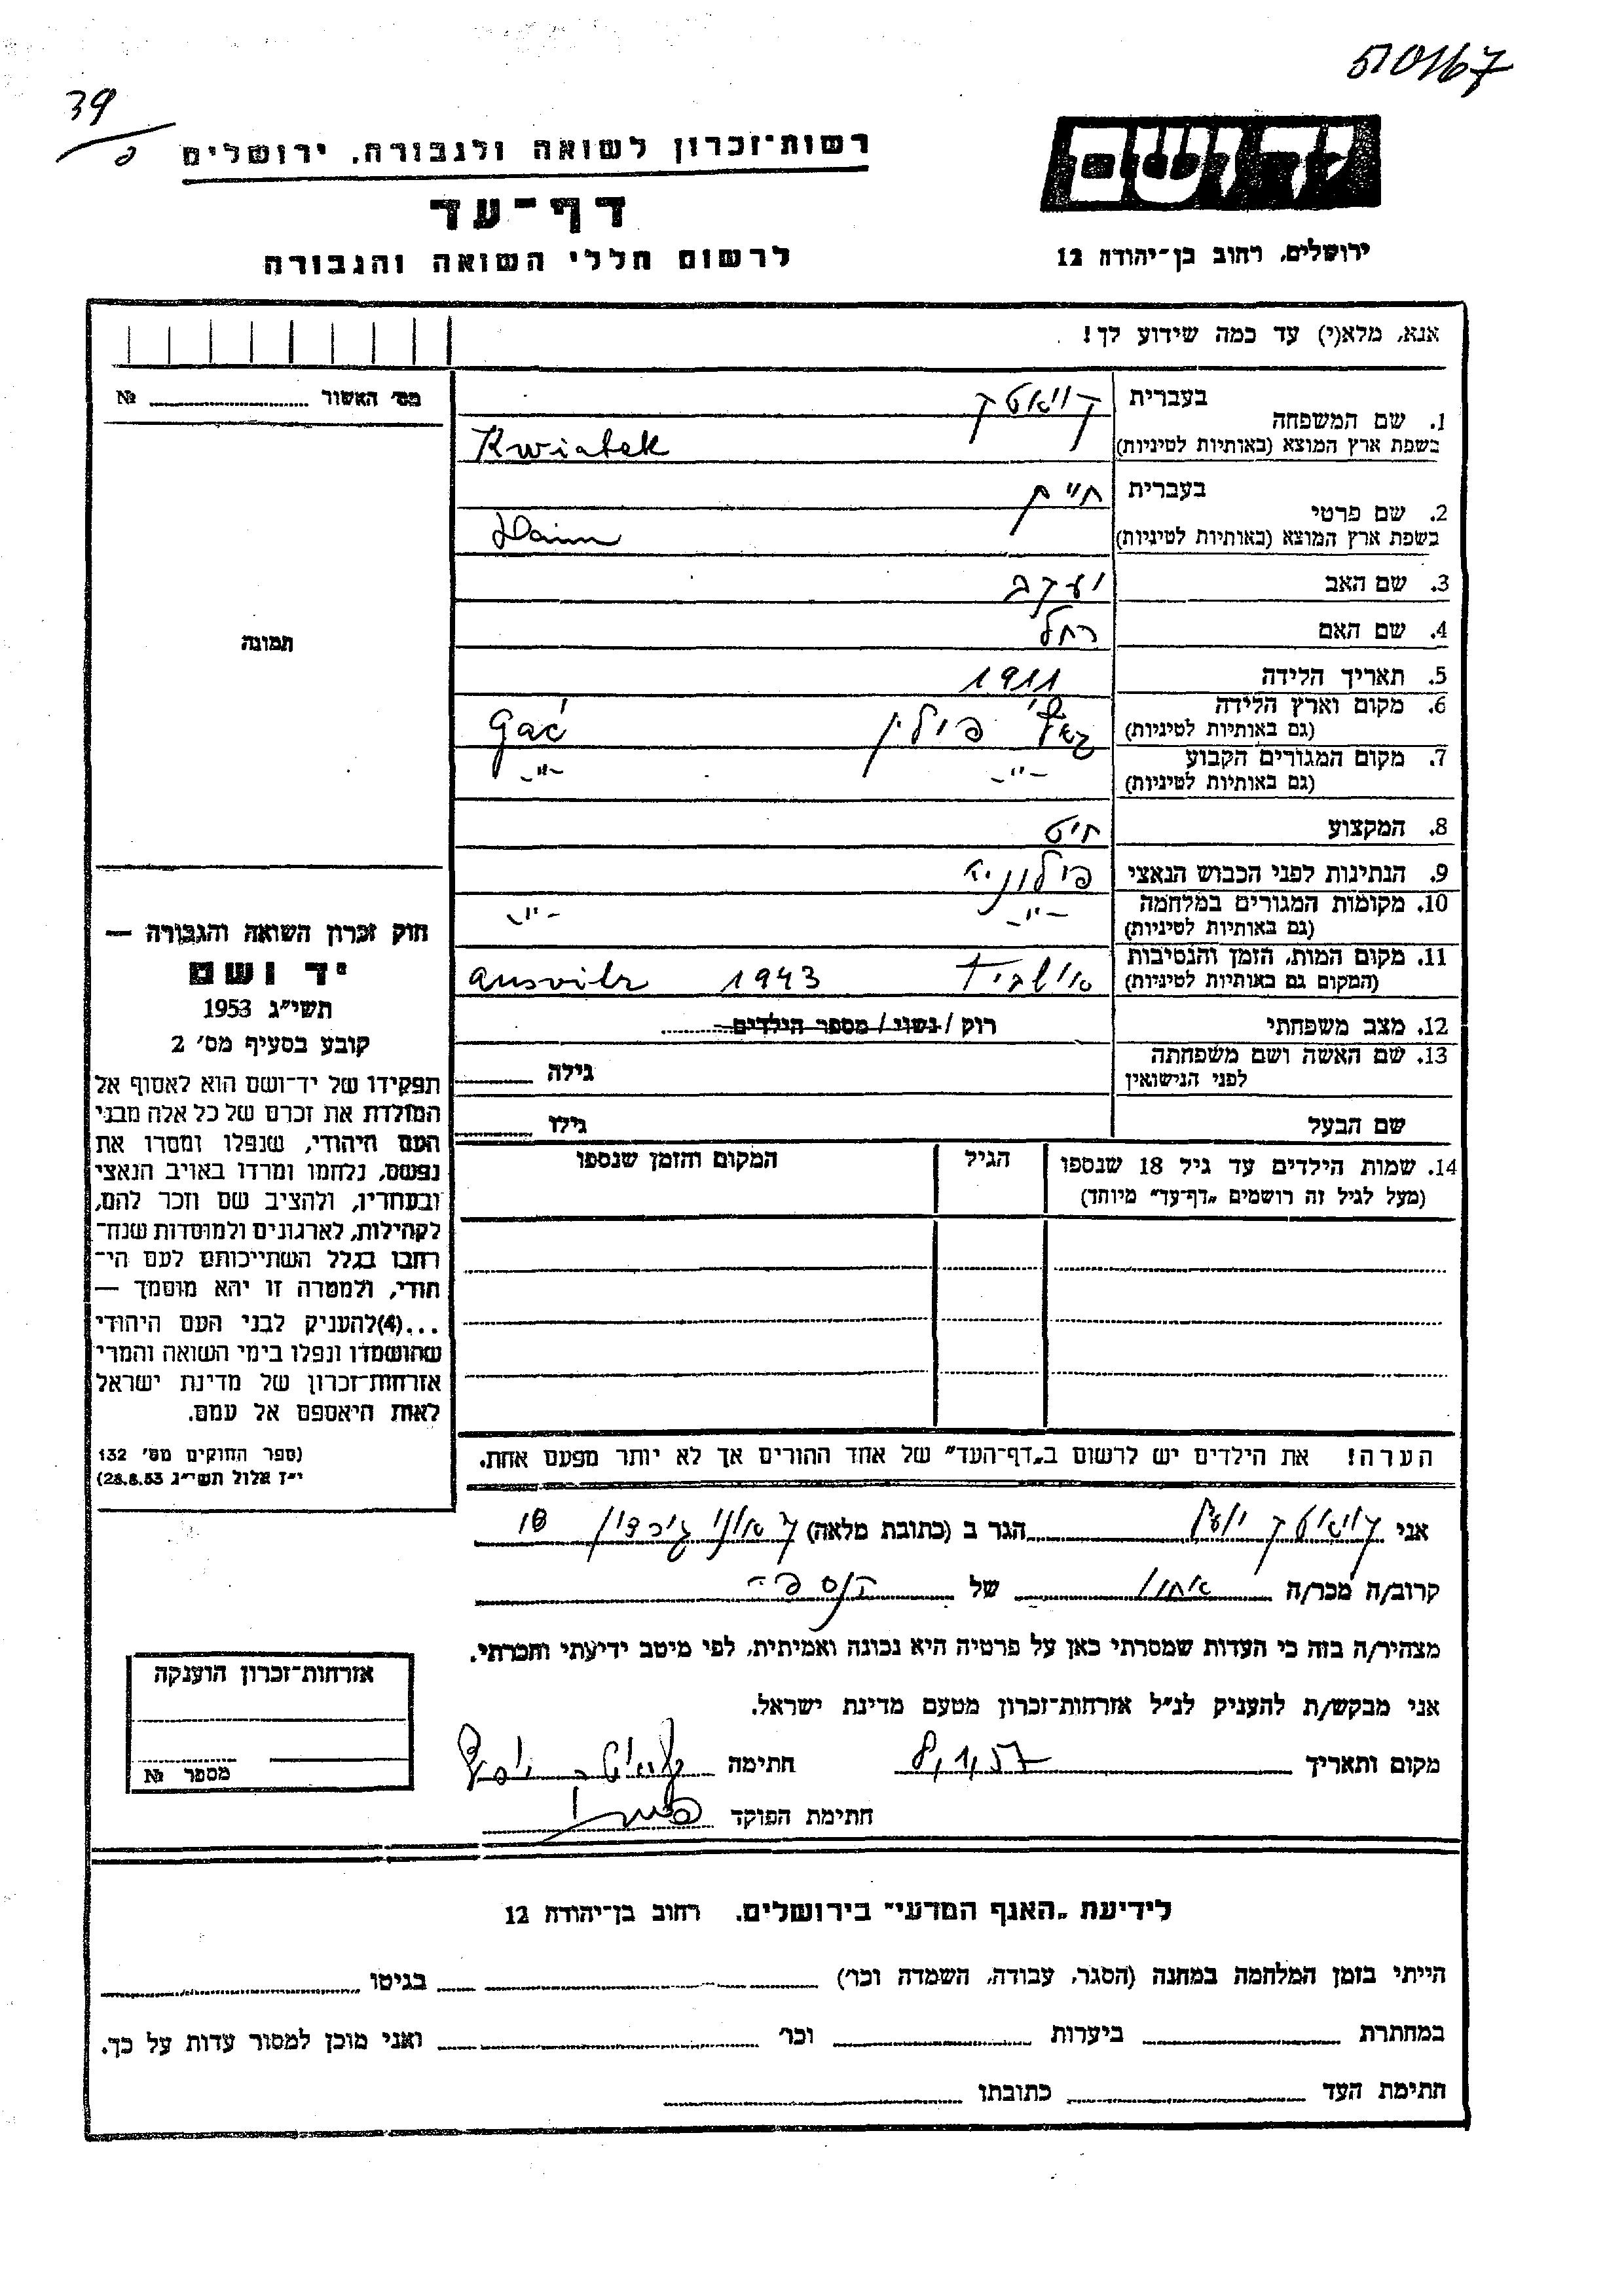 510167
39
רשות־זכרון לשואה ולגבורה, ירושלים
דף־עד
לרשום חללי השואה והגבורה
יד ושם
ירושלים, רחוב בן־יהודה 12
אנא, מלא(י) עד כמה שידוע לך!
מס׳ האשור № ............
1. שם המשפחה
בעברית קוויאטק
בשפת ארץ המוצא (באותיות לטיניות) Kwiatek
2. שם פרטי
בעברית חיים
בשפת ארץ המוצא (באותיות לטיניות) Haim
3. שם האב יעקב
4. שם האם רחל
5. תאריך הלידה 1911
6. מקום וארץ הלידה פולין Gać
(גם באותיות לטיניות)
7. מקום המגורים הקבוע -"- -"-
(גם באותיות לטיניות)
8. המקצוע חיט
9. הנתינות לפני הכבוש הנאצי פולונית
10. מקומות המגורים במלחמה -"- -"-
(גם באותיות לטיניות)
11. מקום המות, הזמן והנסיבות 1943 Ausvitz
(המקום גם באותיות לטיניות)
12. מצב משפחתי רוק / נשוי / מספר הילדים
13. שם האשה ושם משפחתה גילה
לפני הנישואין
שם הבעל גילו
14. שמות הילדים עד גיל 18 שנספו הגיל המקום והזמן שנספו
(מעל לגיל זה רושמים „דף־עד״ מיוחד)
תמונה
חוק זכרון השואה והגבורה —
יד ושם
תשי״ג 1953
קובע בסעיף מס׳ 2
תפקידו של יד־ושם הוא לאסוף אל
המולדת את זכרם של כל אלה מבני
העם היהודי, שנפלו ומסרו את
נפשם, נלחמו ומרדו באויב הנאצי
ובעוזריו, ולהציב שם וזכר להם,
לקהילות, לארגונים ולמוסדות שנח־
רבו בגלל השתייכותם לעם הי־
הודי, ולמטרה זו יהא מוסמך —
...(4)להעניק לבני העם היהודי
שהושמדו ונפלו בימי השואה והמרי
אזרחות־זכרון של מדינת ישראל
לאות היאספם אל עמם.
(ספר החוקים מס׳ 132
י״ז אלול תשי״ג 28.8.53)
הערה! את הילדים יש לרשום ב„דף־העד״ של אחד ההורים אך לא יותר מפעם אחת.
אני קוויאטק הגר ב (כתובת מלאה) 18
קרוב/ה מכר/ה של הנספה
מצהיר/ה בזה כי העדות שמסרתי כאן על פרטיה היא נכונה ואמיתית, לפי מיטב ידיעתי והכרתי.
אני מבקש/ת להעניק לנ״ל אזרחות־זכרון מטעם מדינת ישראל.
מקום ותאריך 8.1.57 חתימה
חתימת הפוקד
אזרחות־זכרון הוענקה
מספר №
לידיעת „האגף המדעי״ בירושלים, רחוב בן־יהודה 12
הייתי בזמן המלחמה במחנה (הסגר, עבודה, השמדה וכו׳) בגיטו
במחתרת ביערות וכו׳ ואני מוכן למסור עדות על כך.
חתימת העד כתובתו